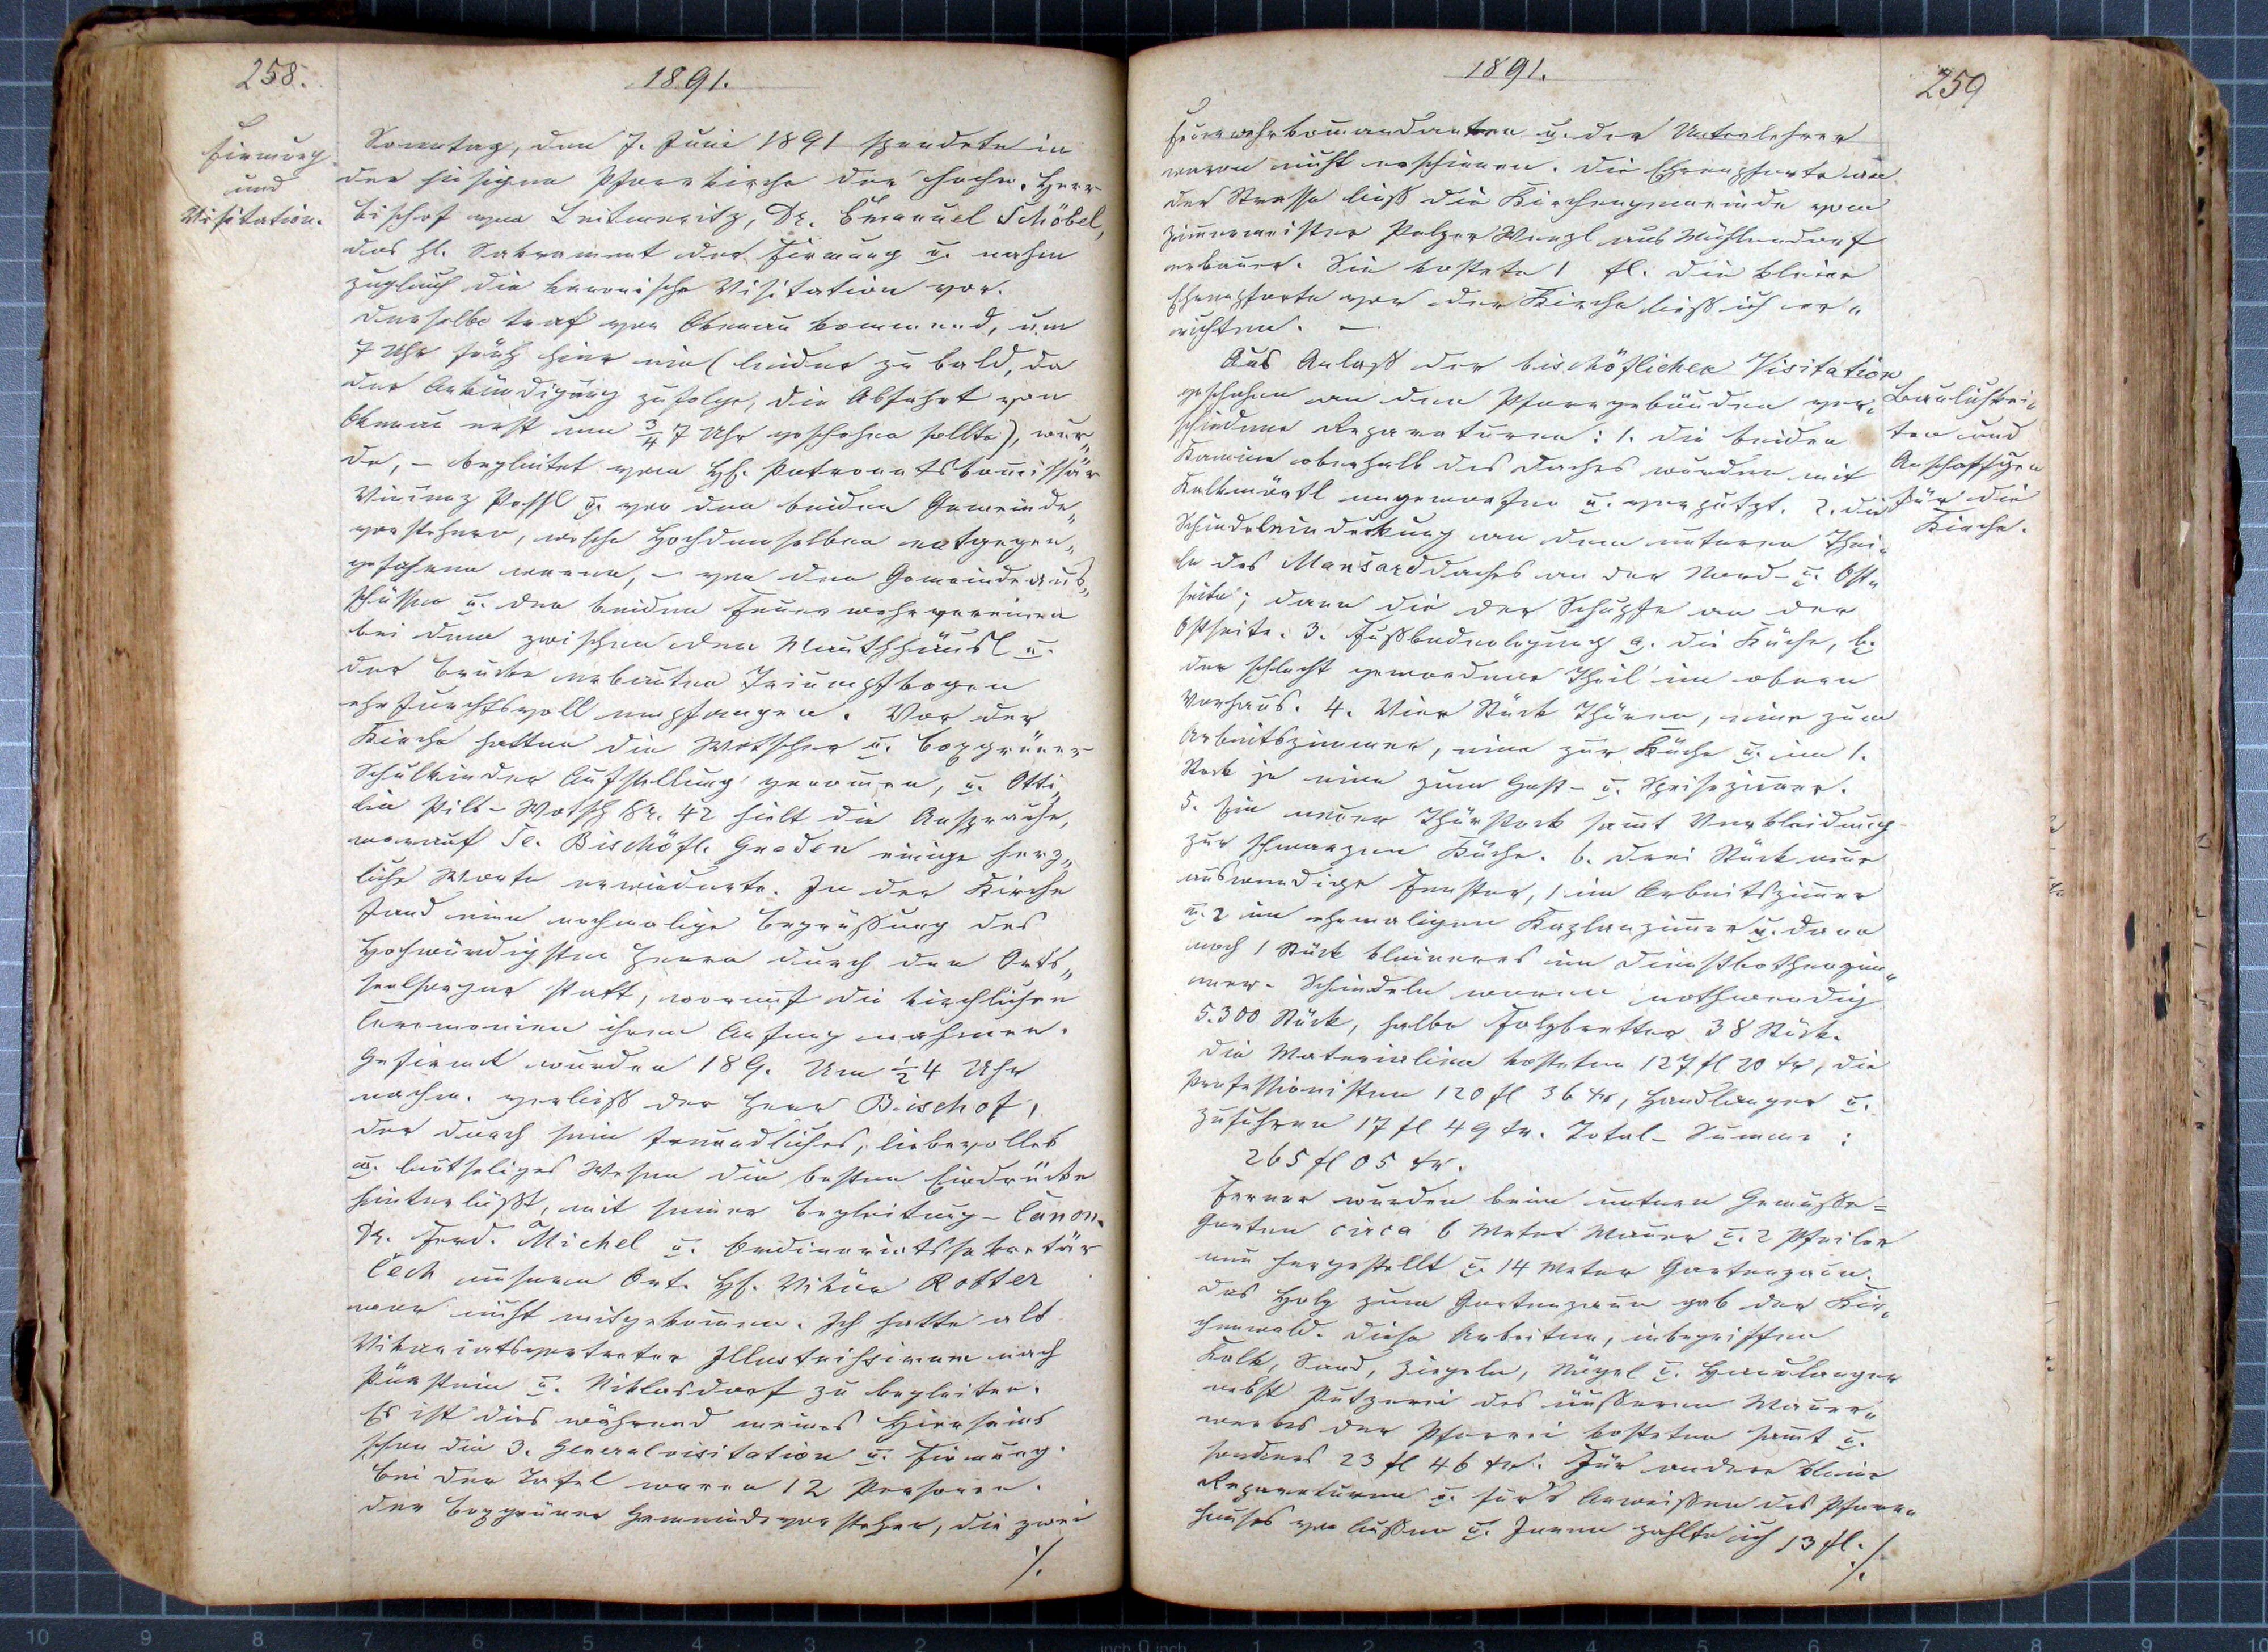 258.
1891.
Firmung
und
Visitation.
Sonntag, den 7. Juni 1891 spendete in
der hiesigen Pfarrkirche der hochw. Herr
Bischof von Leitmeritz, Dr. Emanuel Schöbel,
das hl. Sakrament der Firmung u. nahm
zugleich die kanonische Visitation vor.
Derselbe traf von Okenau kommend, um
7 Uhr früh hier ein (leider zu bald, da
der Ankündigung zufolge, die Abfahrt von
Okenau erst um 3/4 7 Uhr geschehen sollte), wur„
de, – begleitet vom H. Patronatskomissär
Vincenz Possl u. von den beiden Gemeinde„
vorstehern, welche Hochdemselben entgegen„
gefahren waren, – von den Gemeindeaus„
schüssen u. den beiden Feuerwehrvereinen
bei dem zwischen dem Mauthhäusl u.
der Brücke erbauten Triumpfbogen
ehrfurchtsvoll empfangen. Vor der
Kirche hatten die Wotscher u. Boxgrüner
Schulkinder Aufstellung genomen, u. Otti„
lie Pilz - Wotsch Nr. 42 hielt die Ansprache,
worauf Se. Bischöfl. Gnaden einige herz„
liche Worte erwiederte. In der Kirche
fand eine nochmalige Begrüßung des
Hochwürdigsten Herrn durch den Orts„
seelsorger statt, worauf die kirchlichen
Ceremonien ihren Anfang nahmen.
Gefirmt wurden 189. Um 1/2 4 Uhr
nachm. verließ der Herr Bischof,
der durch sein freundliches, liebevolles
u. leutseliges Wesen die besten Eindrücke
hinterläßt, mit seiner Begleitung - Canon.
Dr. Ferd. Michel u. Ordinariatssekretär
Čech unseren Ort. H. Vikär Rotter
war nicht mitgekomen. Ich hatte als
Vikariatsvertreter Illustrissimum nach
Pürstein u. Niklasdorf zu begleiten.
Es ist dies während meines Hierseins
schon die 3. Generalvisitation u. Firmung.
Bei der Tafel waren 12 Personen.
Der Boxgrüner Gemeindevorsteher, die zwei
./.
1891.
259
Feuerwehrkomandanten u. der Unterlehrer
waren nicht erschienen. Die Ehrenpforte an
der Strasse ließ die Kirchengemeinde vom
Zimmermeister Wenzl aus Mühlendorf
erbauen. Sie kostete 1 fl. Die kleine
Ehrenpforte vor der Kirche ließ ich er„
richten. –
Aus Anlaß der bischöflichen Visitation
geschahen an den Pfarrgebäuden ver„
schiedene Reparaturen: 1. die beiden
Kamine oberhalb des Daches wurden mit
Kalkmörtl angeworfen u. verputzt. 2. die
Schindeleindeckung an dem unteren Thei„
le des Mansarddaches an der Nord- u. Ost„
seite; dann die der Schupfe an der
Ostseite. 3. Fußbodenlegung a. die Küche, b.
der schlecht gewordene Theil im oberen
Vorhaus. 4. Vier Stück Thüren, eine zum
Arbeitszimmer, eine zur Küche u. im 1.
Stock je eine zum Gast- u. Speisezimer.
5. Ein neuer Thürstock samt Verkleidung
zur schwarzen Küche. 6. Drei Stück neue
auswendige Fenster, 1 im Arbeitszimer
u. 2 im ehemaligen Kaplanzimer u. dann
noch 1 Stück kleineres im Dienstbothenzim„
mer. Schindeln waren nothwendig
5.300 Stück, halbe Falzbretter 38 Stück.
Die Materialien kosteten 127 fl 20 kr, die
Professionisten 120 fl 36 kr, Handlanger u.
Zufuhren 17 fl 49 kr. Total-Summe:
265 fl 05 kr.
Ferner wurden beim unteren Gemüße=
Garten circa 6 Meter Mauer u. 2 Pfeiler
neu hergestellt u. 14 Meter Gartenzaun.
Das Holz zum Gartenzaun gab der Kir„
chenwald. Diese Arbeiten, inbegriffen
Kalk, Sand, Ziegeln, Nägel u. Handlanger
nebst Putzerei des äußeren Mauer„
werkes der Pfarrei kosteten samt u.
sonders 23 fl 46 kr. Für andere kleine
Reparaturen u. für's Ausweißen des Pfarr„
hauses von Außen u. Innen zahlte ich 13 fl. ./.
Baulichkei„
ten und
Anschaffgen
für die
Kirche.
10 9 8 7 6 5 4 3 2 1 inch 0 inch 1 2 3 4 5 6 7 8 9